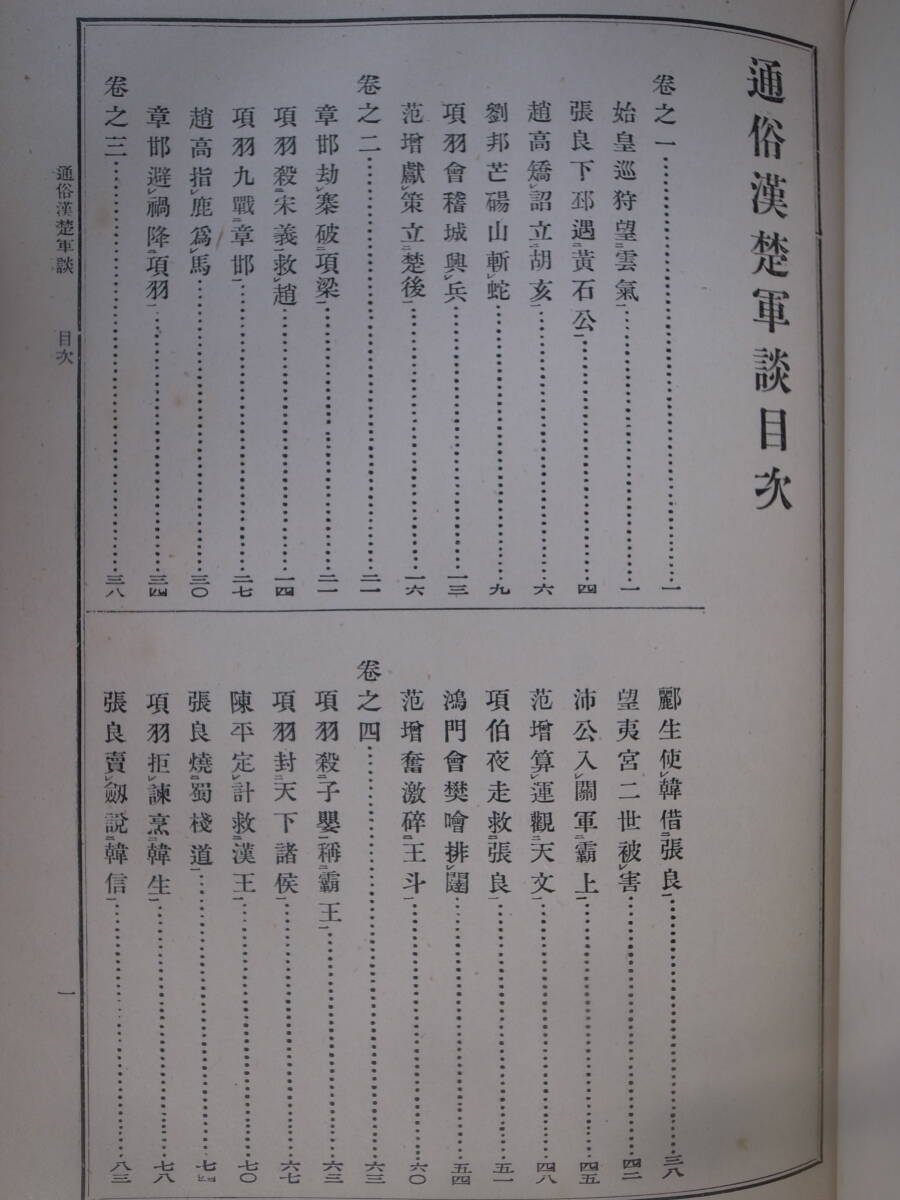 通俗漢楚軍談目次
卷之一…一
始皇巡狩望二雲氣一…一
張良下邳遇二黃石公一…四
趙高矯レ詔立二胡亥一…六
劉邦芒碭山斬レ蛇…九
項羽會稽城興レ兵…一三
范增獻レ策立二楚後一…一六
卷之二…二一
章邯劫レ寨破二項梁一…二一
項羽殺二宋義一救レ趙…一四
項羽九戰二章邯一…二七
趙高指レ鹿爲レ馬…三〇
章邯避レ禍降二項羽一…三四
卷之三…三八
酈生使レ韓借二張良一…三八
望夷宮二世被レ害…四二
沛公入レ關軍二霸上一…四五
范增算レ運觀二天文一…四八
項伯夜走救二張良一…五一
鴻門會樊噲排レ闥…五四
范增奮激碎二玉斗一…六〇
卷之四…六三
項羽殺二子嬰一稱二霸王一…六三
項羽封二天下諸侯一…六七
陳平定レ計救二漢王一…七〇
張良燒二蜀棧道一…七四
項羽拒レ諫烹二韓生一…七八
張良賣レ劔說二韓信一…八三
通俗漢楚軍談 目次
一